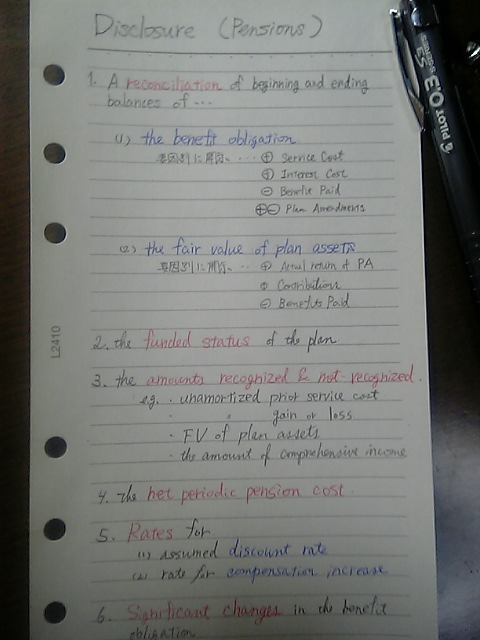 Disclosure (Pensions)
1. A reconciliation of beginning and ending
balances of ...
(1) the benefit obligation
要因別に開示、 ... ⊕ Service Cost
⊕ Interest Cost
⊖ Benefit Paid
⊕⊖ Plan Amendments
(2) the fair value of plan assets
要因別に開示、 ... ⊕ Actual return of PA
⊕ Contributions
⊖ Benefits Paid
2. the funded status of the plan
3. the amounts recognized & not-recognized.
e.g. ・unamortized prior service cost
・ 〃 gain or loss
・FV of plan assets
・the amount of comprehensive income
4. the net periodic pension cost.
5. Rates for
(1) assumed discount rate
(2) rate for compensation increase
6. Significant changes in the benefit
obligation
L2410
PILOT 0.3